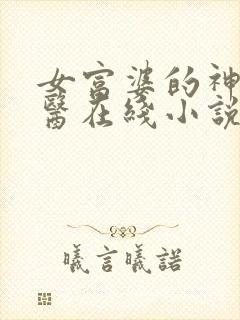 女富婆的神
醫在綫小說
曦言曦諾